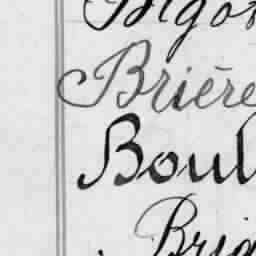 Bigot
Brière
Boul
Brig